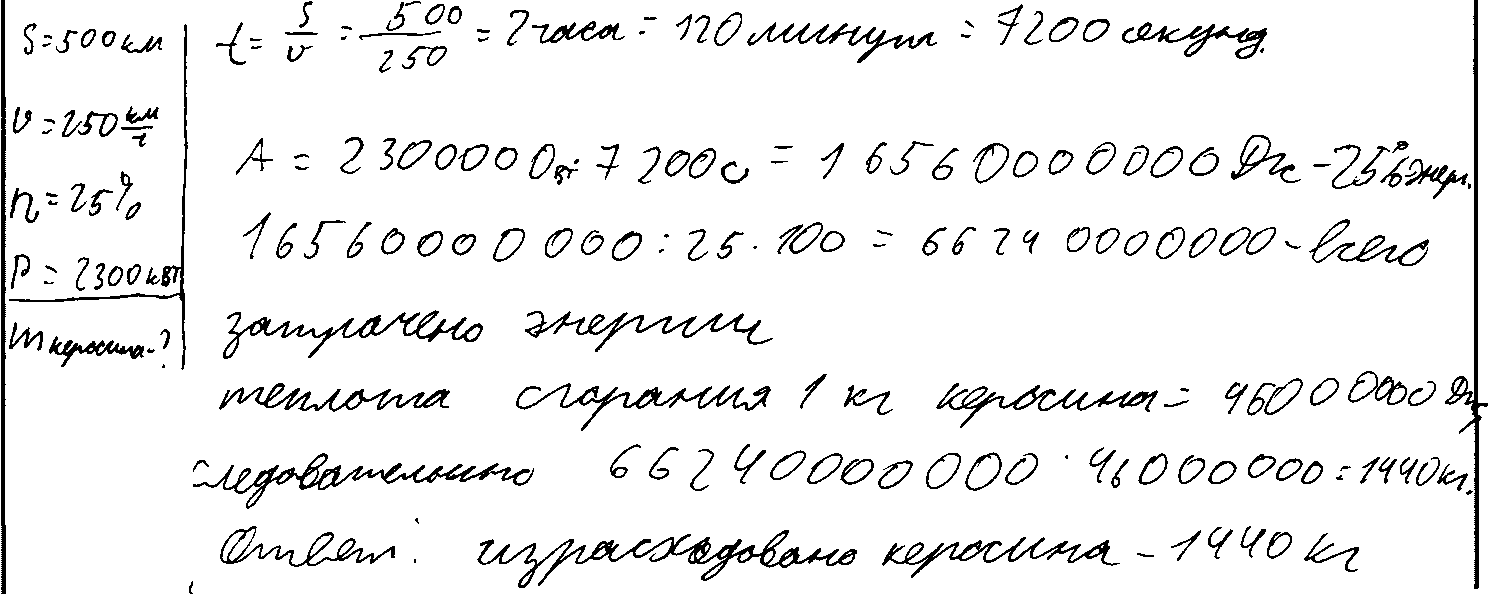 S=500км
v=250 км/ч
n=25%
P=2300кВт
m керосина-?
t= S/v = 500/250 = 2 часа = 120 минут = 7200 секунд.
A = 2300000Вт·7200с = 16560000000 Дж -25% энерг.
16560000000 : 25 · 100 = 66240000000 - всего
затрачено энергии
теплота сгорания 1 кг керосина = 46000000 Дж,
следовательно 66240000000 : 46000000 = 1440кг.
Ответ: израсходовано керосина - 1440 кг